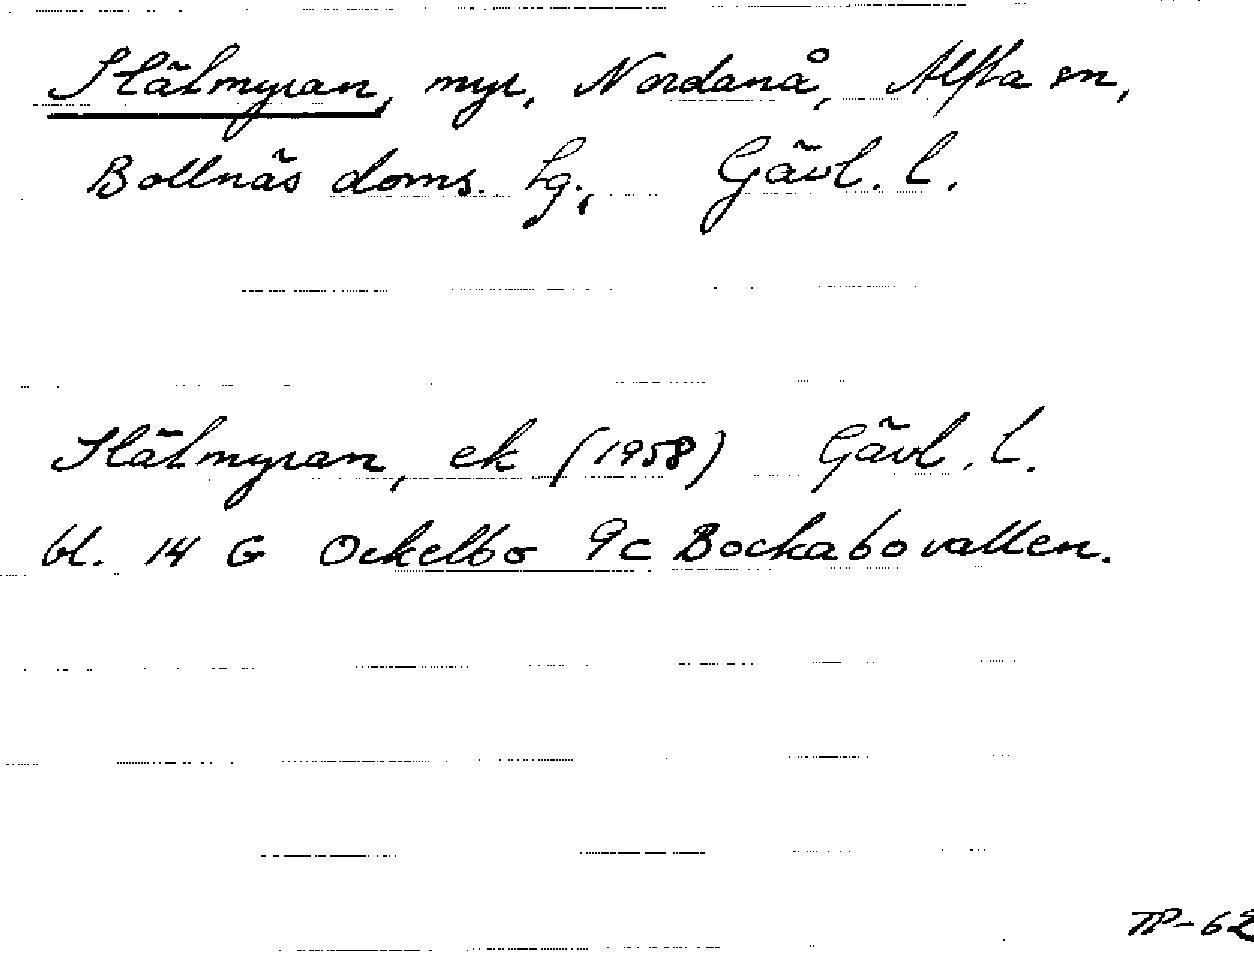 Stälmyran, myr, Nordanå, Alfta sn,
Bollnäs doms. Lg., Gävl. l.
Stälmyran, ek (1958) Gävl. l.
bl. 14 G Ockelbo 9c Bockabovallen.
TP-62